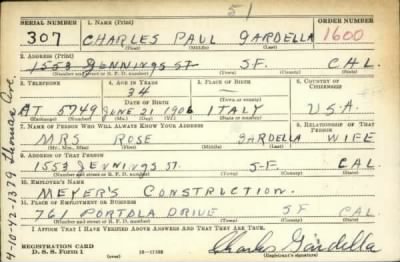 51
SERIAL NUMBER 1. NAME (Print) ORDER NUMBER
307 CHARLES PAUL GARDELLA 1600
(First) (Middle) (Last)
2. ADDRESS (Print)
1553 JENNINGS ST S.F. CAL.
(Number and street or R. F. D. number) (Town) (County) (State)
3. TELEPHONE 4. AGE IN YEARS 5. PLACE OF BIRTH 6. COUNTRY OF CITIZENSHIP
34
DATE OF BIRTH (Town or county)
AT 5749 JUNE 21 1906 ITALY U.S.A.
(Exchange) (Number) (Mo.) (Day) (Yr.) (State or country)
7. NAME OF PERSON WHO WILL ALWAYS KNOW YOUR ADDRESS 8. RELATIONSHIP OF THAT PERSON
MRS ROSE GARDELLA WIFE
(Mr., Mrs., Miss) (First) (Middle) (Last)
9. ADDRESS OF THAT PERSON
1553 JENNINGS ST. S.F. CAL.
(Number and street or R. F. D. number) (Town) (County) (State)
10. EMPLOYER'S NAME
MEYER'S CONSTRUCTION.
11. PLACE OF EMPLOYMENT OR BUSINESS
761 PORTOLA DRIVE SF CAL.
(Number and street or R. F. D. number) (Town) (County) (State)
I AFFIRM THAT I HAVE VERIFIED ABOVE ANSWERS AND THAT THEY ARE TRUE.
REGISTRATION CARD
D. S. S. Form 1 16—17105 Charles Gardella
(Registrant's signature)
4-10-42-1379 Thomas Ave.